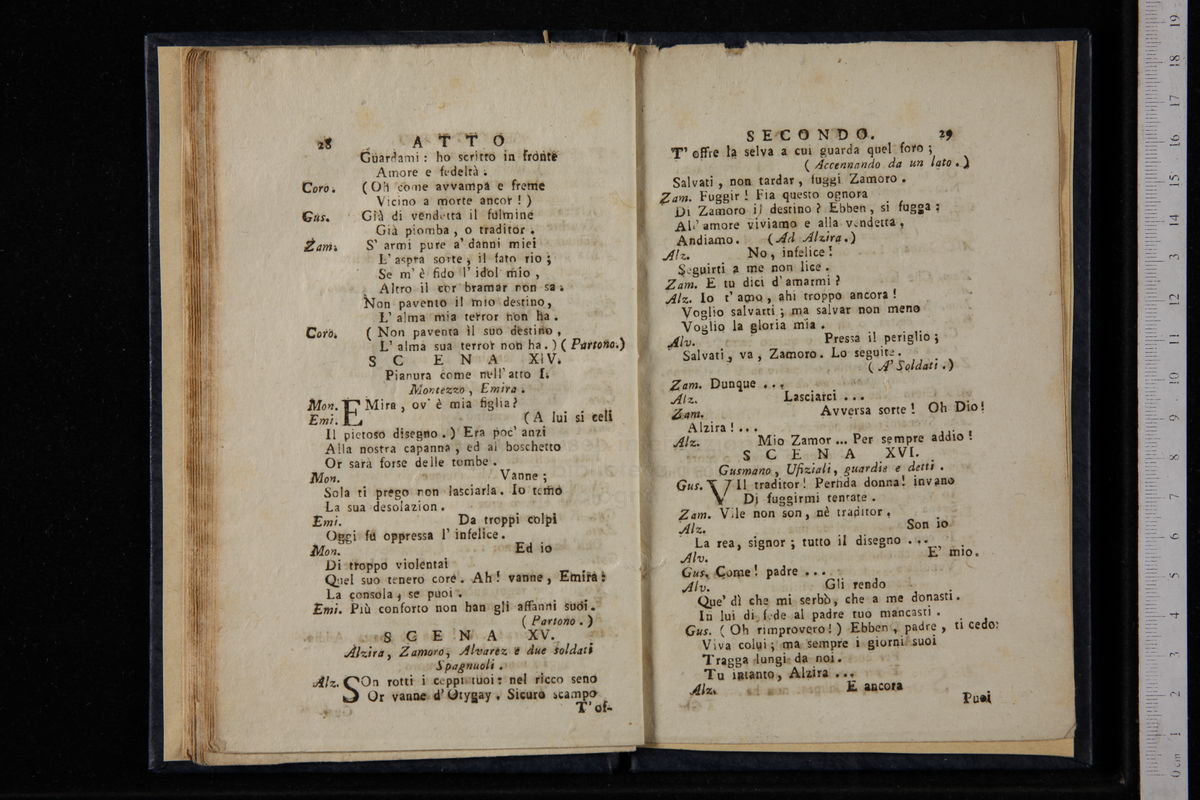 28 ATTO
Guardami: ho scritto in fronte
Amore e fedeltà.
Coro. (Oh come avvampa e freme
Vicino a morte ancor!)
Gus. Già di vendetta il fulmine
Già piomba, o traditor.
Zam. S' armi pure a' danni miei
L' aspra sorte, il fato rio;
Se m' è fido l' idol mio,
Altro il cor bramar non sa.
Non pavento il mio destino,
L' alma mia terror non ha.
Coro. (Non paventa il suo destino,
L' alma sua terror non ha.) (Partono.)
SCENA XIV.
Pianura come nell' atto I.
Montezzo, Emira.
Mon. EMira, ov' è mia figlia?
Emi. (A lui si celi
Il pietoso disegno.) Era poc' anzi
Alla nostra capanna, ed al boschetto
Or sarà forse delle tombe.
Mon. Vanne;
Sola ti prego non lasciarla. Io temo
La sua desolazion.
Emi. Da troppi colpi
Oggi fu oppressa l' infelice.
Mon. Ed io
Di troppo violentai
Quel suo tenero core. Ah! vanne, Emira:
La consola, se puoi.
Emi. Più conforto non han gli affanni suoi.
(Partono.)
SCENA XV.
Alzira, Zamoro, Alvarez e due soldati
Spagnuoli.
Alz. SOn rotti i ceppi tuoi: nel ricco seno
Or vanne d' Otygay. Sicuro scampo
T' of-
SECONDO. 29
T' offre la selva a cui guarda quel foro;
(Accennando da un lato.)
Salvati, non tardar, fuggi Zamoro.
Zam. Fuggir! Fia questo ognora
Di Zamoro il destino? Ebben, si fugga:
All' amore viviamo e alla vendetta,
Andiamo. (Ad Alzira.)
Alz. No, infelice!
Seguirti a me non lice.
Zam. E tu dici d' amarmi?
Alz. Io t' amo, ahi troppo ancora!
Voglio salvarti; ma salvar non meno
Voglio la gloria mia.
Alv. Pressa il periglio;
Salvati, va, Zamoro. Lo seguite.
(A' Soldati.)
Zam. Dunque ...
Alz. Lasciarci ...
Zam. Avversa sorte! Oh Dio!
Alzira! ...
Alz. Mio Zamor ... Per sempre addio!
SCENA XVI.
Gusmano, Ufiziali, guardie e detti.
Gus. VIl traditor! Perfida donna! invano
Di fuggirmi tentate.
Zam. Vile non son, nè traditor.
Alz. Son io
La rea, signor; tutto il disegno ...
Alv. E' mio.
Gus. Come! padre ...
Alv. Gli rendo
Que' dì che mi serbò, che a me donasti.
In lui di fede al padre tuo mancasti.
Gus. (Oh rimprovero!) Ebben, padre, ti cedo:
Viva colui; ma sempre i giorni suoi
Tragga lungi da noi.
Tu intanto, Alzira ...
Alz. E ancora
Puoi
0 cm 1 2 3 4 5 6 7 8 9 10 11 12 13 14 15 16 17 18 19